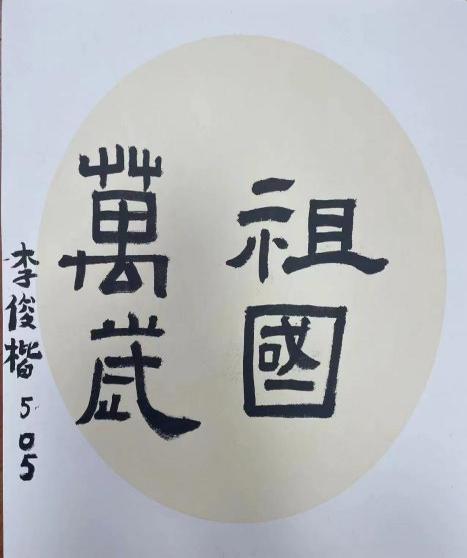 祖國
萬歲
李俊楷 5.05